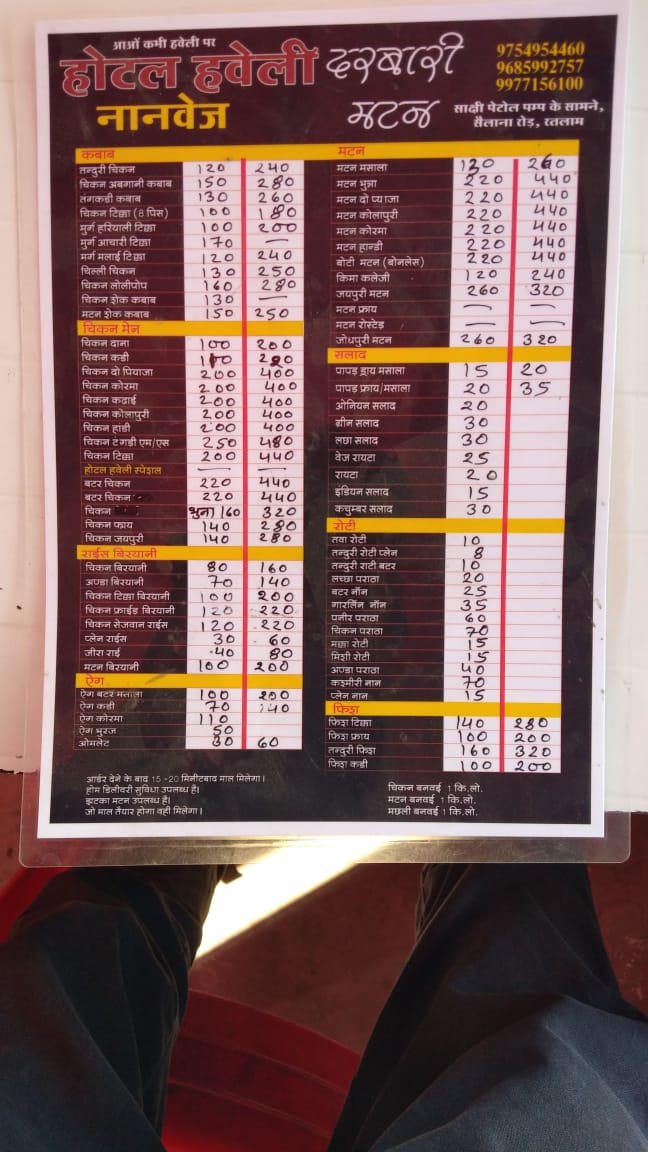 आओं कभी हवेली पर
होटल हवेली
नानवेज
दरबारी
मटन
9754954460
9685992757
9977156100
साक्षी पेटोल पम्प के सामने,
सैलाना रोड़, रतलाम
कबाब
तन्दुरी चिकन 120 240
चिकन अबगानी कबाब 150 280
तंगकडी कबाब 130 260
चिकन टिक्का (8 पिस) 100 180
मुर्ग हरियाली टिक्का 100 200
मुर्ग आचारी टिक्का 170 —
मर्ग मलाई टिक्का 120 240
चिल्ली चिकन 130 250
चिकन लोलीपोप 160 280
चिकन शेक कबाब 130 —
मटन शेक कबाब 150 250
चिकन मेन
चिकन दाना 100 200
चिकन कडी 220
चिकन दो पियाजा 200 400
चिकन कोरमा 200 400
चिकन कढ़ाई 200 400
चिकन कोलापुरी 200 400
चिकन हांडी 200 400
चिकन टंगड़ी एम/एस 250 480
चिकन टिक्का 200 440
होटल हवेली स्पेशल — —
बटर चिकन 220 440
बटर चिकन 220 440
चिकन भुना 160 320
चिकन फाय 140 280
चिकन जयपुरी 140 280
राईस बिरयानी
चिकन बिरयानी 80 160
अण्डा बिरयानी 70 140
चिकन टिक्का बिरयानी 100 200
चिकन फ्राईड बिरयानी 120 220
चिकन सेजवान राईस 120 220
प्लेन राईस 30 60
जीरा राई 40 80
मटन बिरयानी 100 200
ऐग
ऐग बटर मसाला 100 200
ऐग कडी 70 140
ऐग कोरमा 110
ऐग भुरज 50
ओमलेट 30 60
आर्डर देने के बाद 15 -20 मिनीटबाद माल मिलेगा।
होम डिलीवरी सुविधा उपलब्ध है।
झटका मटन उपलब्ध है।
जो माल तैयार होगा वही मिलेगा।
मटन
मटन मसाला 120 260
मटन भुन्ना 220 440
मटन दो प्याजा 220 440
मटन कोलापुरी 220 440
मटन कोरमा 220 440
मटन हान्डी 220 440
बोटी मटन (बोनलेस) 220 440
किमा कलेजी 120 240
जयपुरी मटन 260 320
मटन फ्राय — —
मटन रोस्टेड — —
जोधपुरी मटन 260 320
सलाद
पापड़ ड्राय मसाला 15 20
पापड़ फ्राय/मसाला 20 35
ओनियन सलाद 20
ग्रीन सलाद 30
लछा सलाद 30
वेज रायटा 25
रायटा 20
इंडियन सलाद 15
कचुम्बर सलाद 30
रोटी
तवा रोटी 10
तन्दुरी रोटी प्लेन 8
तन्दुरी राटी बटर 10
लच्छा पराठा 20
बटर नॉन 25
गारलिंन नॉन 35
पनीर पराठा 60
चिकन पराठा 70
मक्का रोटी 15
मिशी रोटी 15
अण्डा पराठा 40
कश्मीरी नान 70
प्लेन नान 15
फिश
फिश टिक्का 140 280
फिश फ्राय 100 200
तन्दुरी फिश 160 320
फिश कडी 100 200
चिकन बनवई 1 कि.लो.
मटन बनवई 1 कि.लो.
मछली बनवई 1 कि.लो.